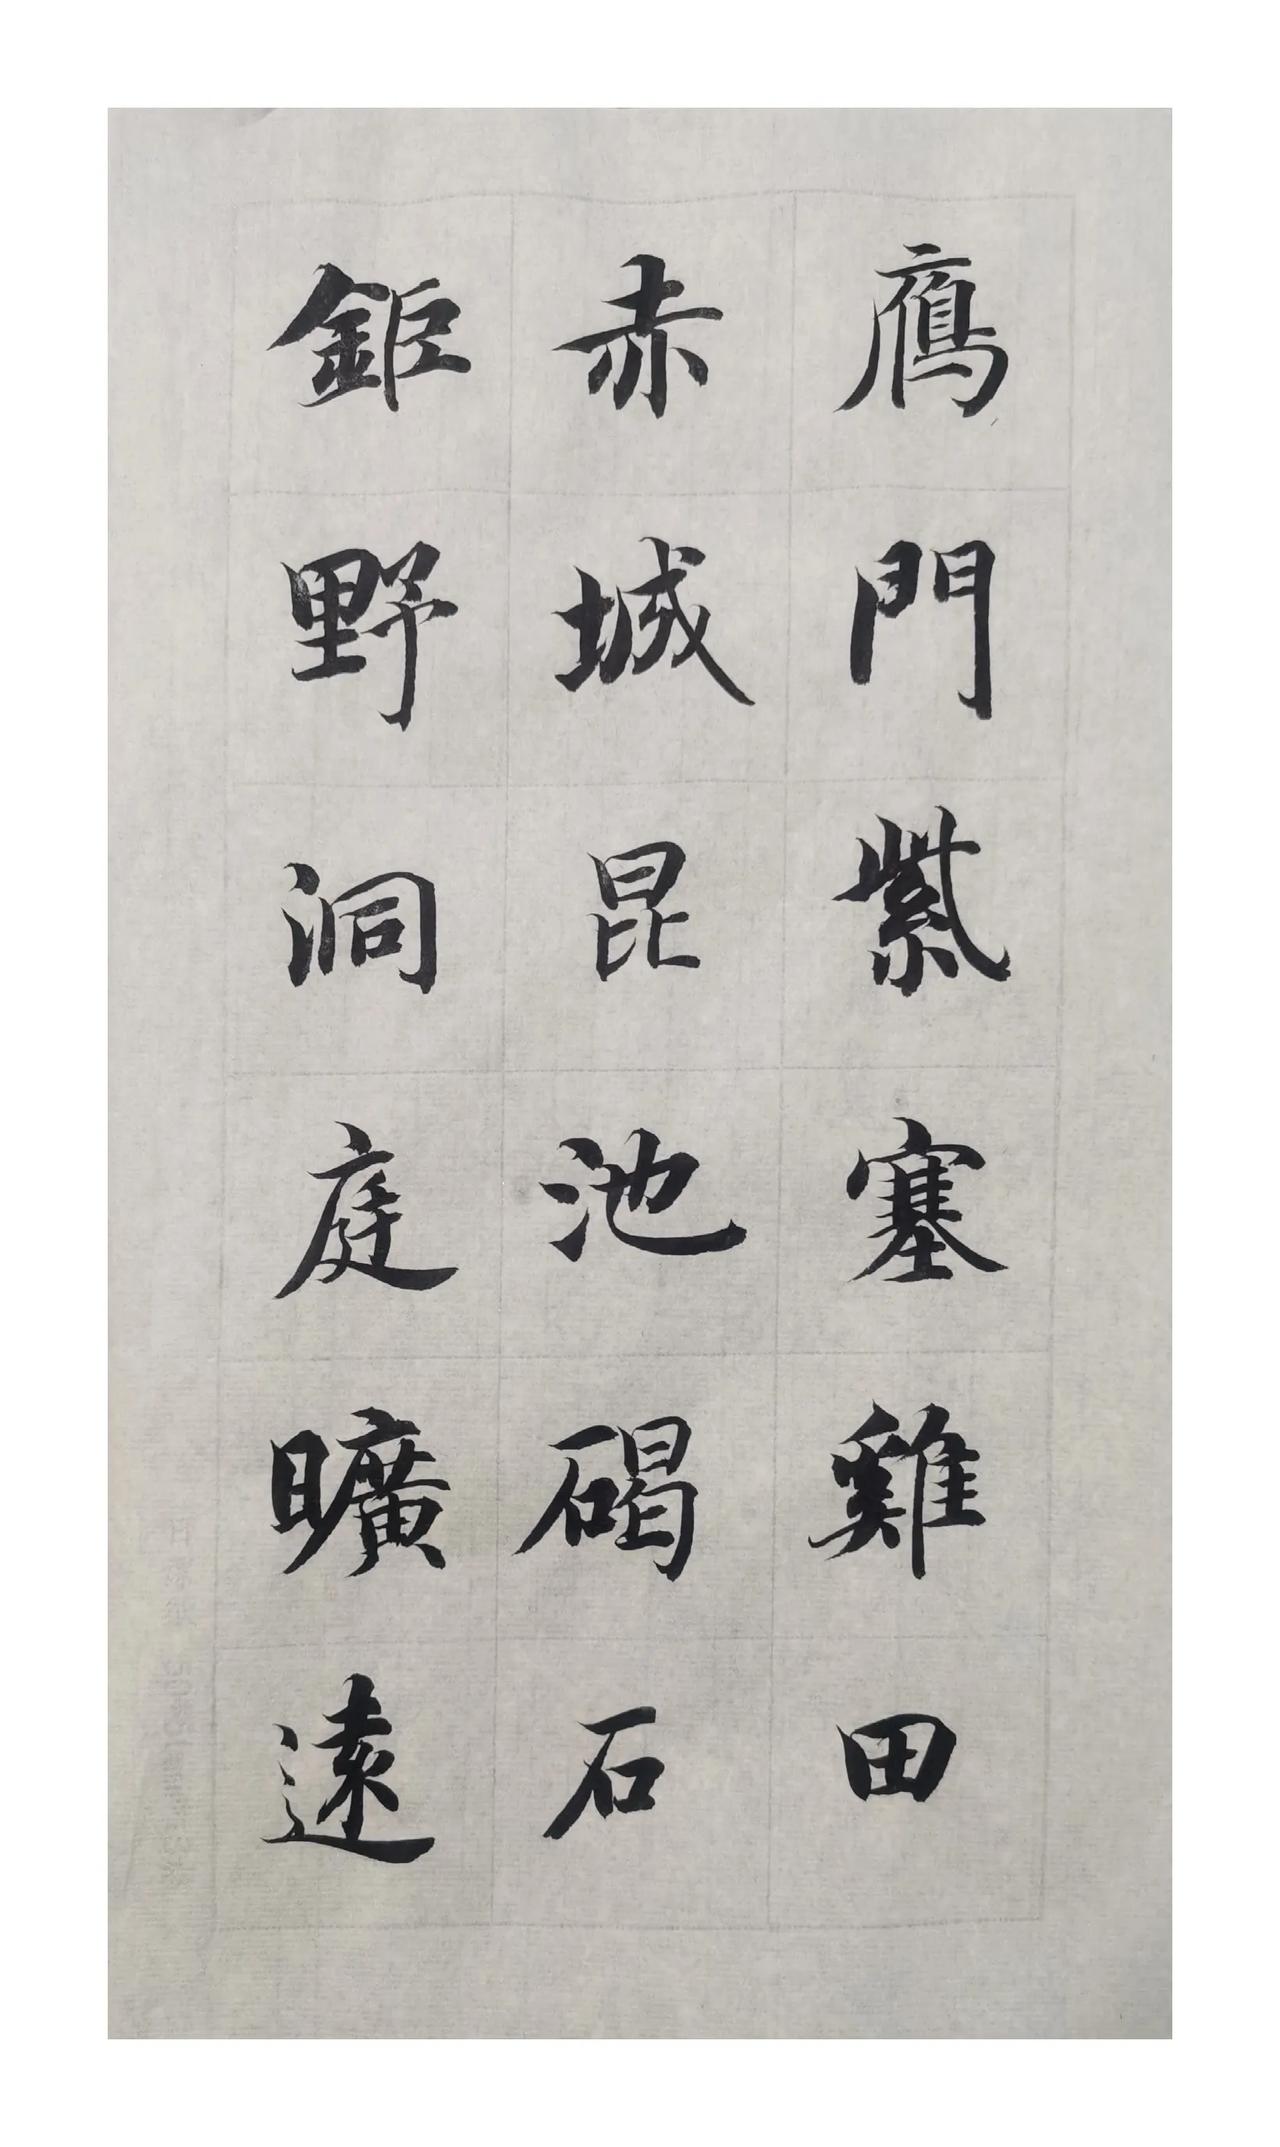 鴈門紫塞雞田
赤城昆池碣石
鉅野洞庭曠遠